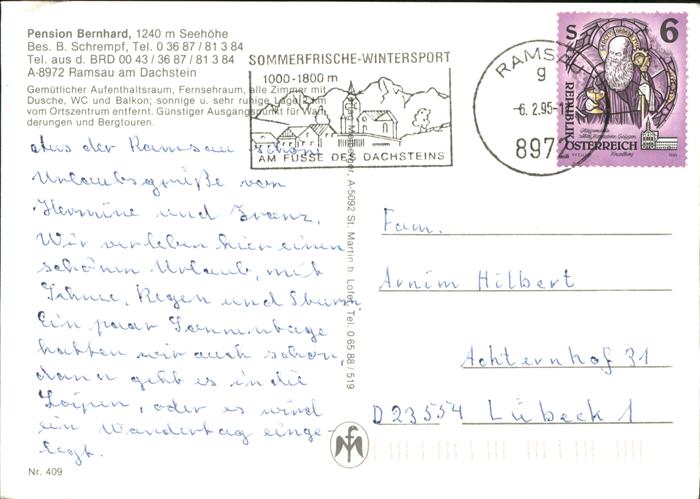 Pension Bernhard, 1240 m Seehöhe
Bes. B. Schrempf, Tel. 0 36 87 / 81 3 84
Tel. aus d. BRD 00 43 / 36 87 / 81 3 84
A-8972 Ramsau am Dachstein
Gemütlicher Aufenthaltsraum, Fernsehraum, alle Zimmer mit
Dusche, WC und Balkon; sonnige u. sehr ruhige Lage, 2 km
vom Ortszentrum entfernt. Günstiger Ausgangspunkt für Wan-
derungen und Bergtouren.
SOMMERFRISCHE-WINTERSPORT
1000-1800 m
AM FUSSE DES DACHSTEINS
RAMSAU
g
-6. 2. 95-
8972
S 6
REPUBLIK
ÖSTERREICH
Aus der Ramsau schöne
Urlaubsgrüße von
Hermine und Franz.
Wir verleben hier einen
schönen Urlaub, mit
Schnee, Regen und Sturm
Ein paar Sonnentage
hatten wir auch schon,
dann geht es in die
Loipen, oder es wird
ein Wandertag einge-
legt.
A-5092 St. Martin b. Lofer, Tel. 0 65 88 / 519
Fam.
Arnim Hilbert
Achternhof 31
D 23554 Lübeck 1
Nr. 409